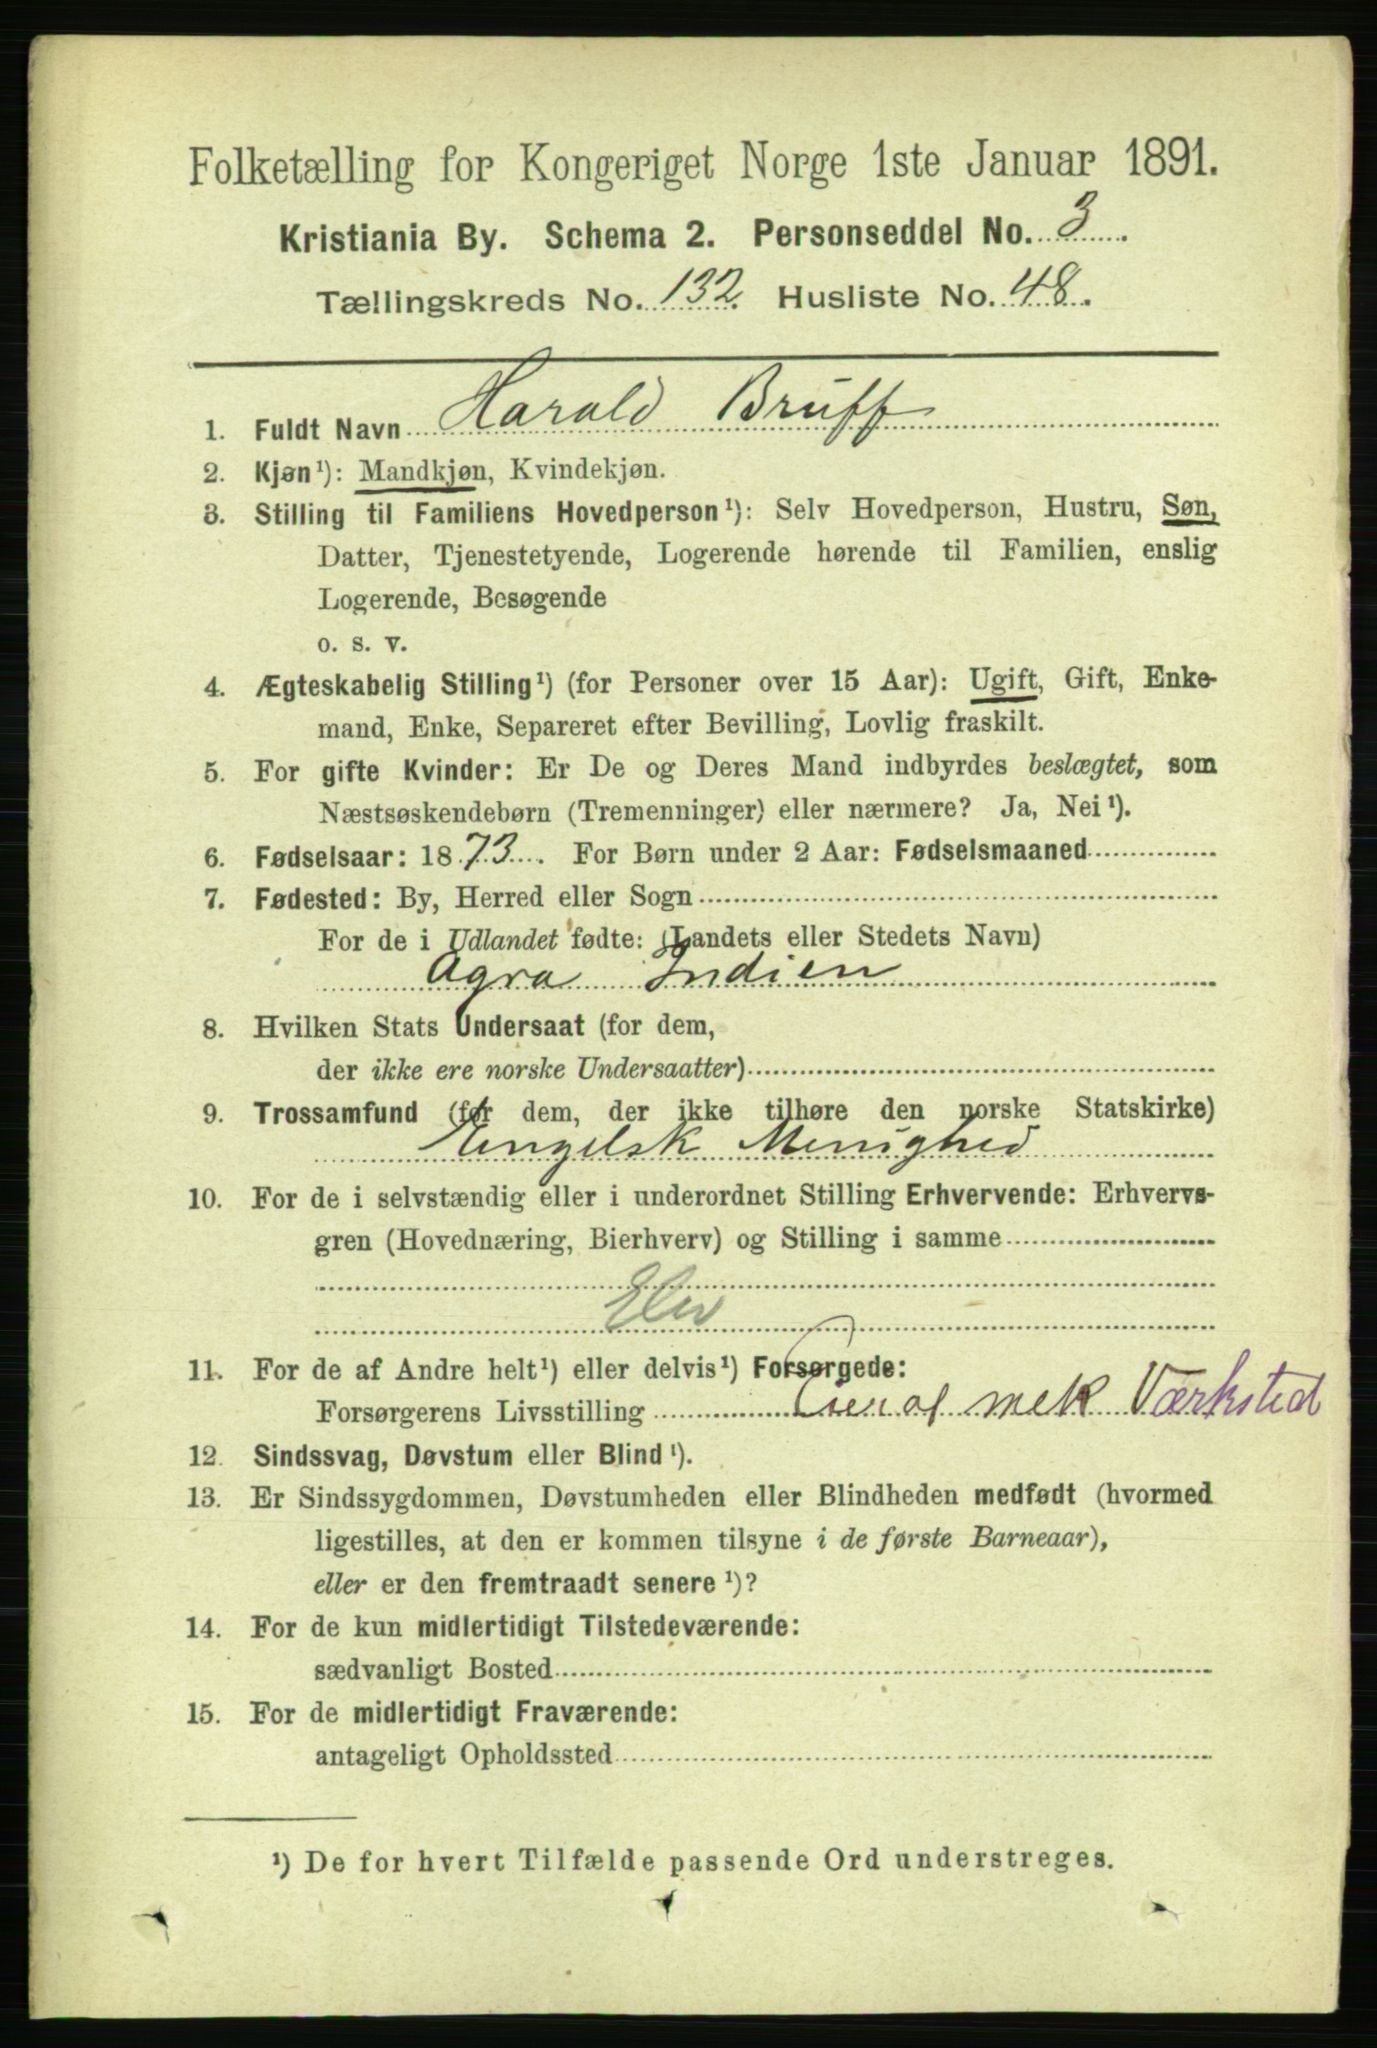 Folketælling for Kongeriget Norge 1ste Januar 1891.
Kristiania By. Schema 2. Personseddel No. 3
Tællingskreds No. 132. Husliste No. 48.
1. Fuldt Navn Harald Bruff
2. Kjøn¹): Mandkjøn, Kvindekjøn.
3. Stilling til Familiens Hovedperson¹): Selv Hovedperson, Hustru, Søn,
Datter, Tjenestetyende, Logerende hørende til Familien, enslig
Logerende, Besøgende
o. s. v.
4. Ægteskabelig Stilling¹) (for Personer over 15 Aar): Ugift, Gift, Enke-
mand, Enke, Separeret efter Bevilling, Lovlig fraskilt.
5. For gifte Kvinder: Er De og Deres Mand indbyrdes beslægtet, som
Næstsøskendebørn (Tremenninger) eller nærmere? Ja, Nei¹).
6. Fødselsaar: 1873. For Børn under 2 Aar: Fødselsmaaned
7. Fødested: By, Herred eller Sogn
For de i Udlandet fødte: (Landets eller Stedets Navn)
Agra Indien
8. Hvilken Stats Undersaat (for dem,
der ikke ere norske Undersaatter)
9. Trossamfund (for dem, der ikke tilhøre den norske Statskirke)
Engelsk Menighed
10. For de i selvstændig eller i underordnet Stilling Erhvervende: Erhvervs-
gren (Hovednæring, Bierhverv) og Stilling i samme
Elev
11. For de af Andre helt¹) eller delvis¹) Forsørgede:
Forsørgerens Livsstilling Eier af mek Værksted
12. Sindssvag, Døvstum eller Blind¹).
13. Er Sindssygdommen, Døvstumheden eller Blindheden medfødt (hvormed
ligestilles, at den er kommen tilsyne i de første Barneaar),
eller er den fremtraadt senere¹)?
14. For de kun midlertidigt Tilstedeværende:
sædvanligt Bosted
15. For de midlertidigt Fraværende:
antageligt Opholdssted
¹) De for hvert Tilfælde passende Ord understreges.